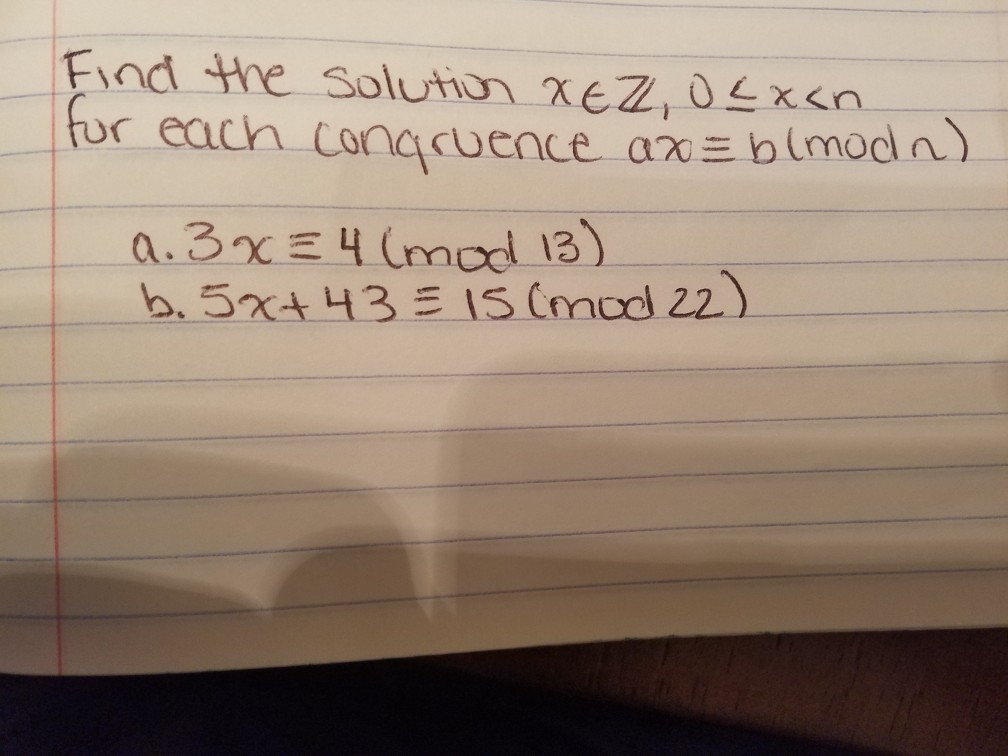 Find the solution x∈ℤ, 0≤x<n
for each congruence ax≡b(mod n)
a. 3x≡4 (mod 13)
b. 5x+43≡15 (mod 22)